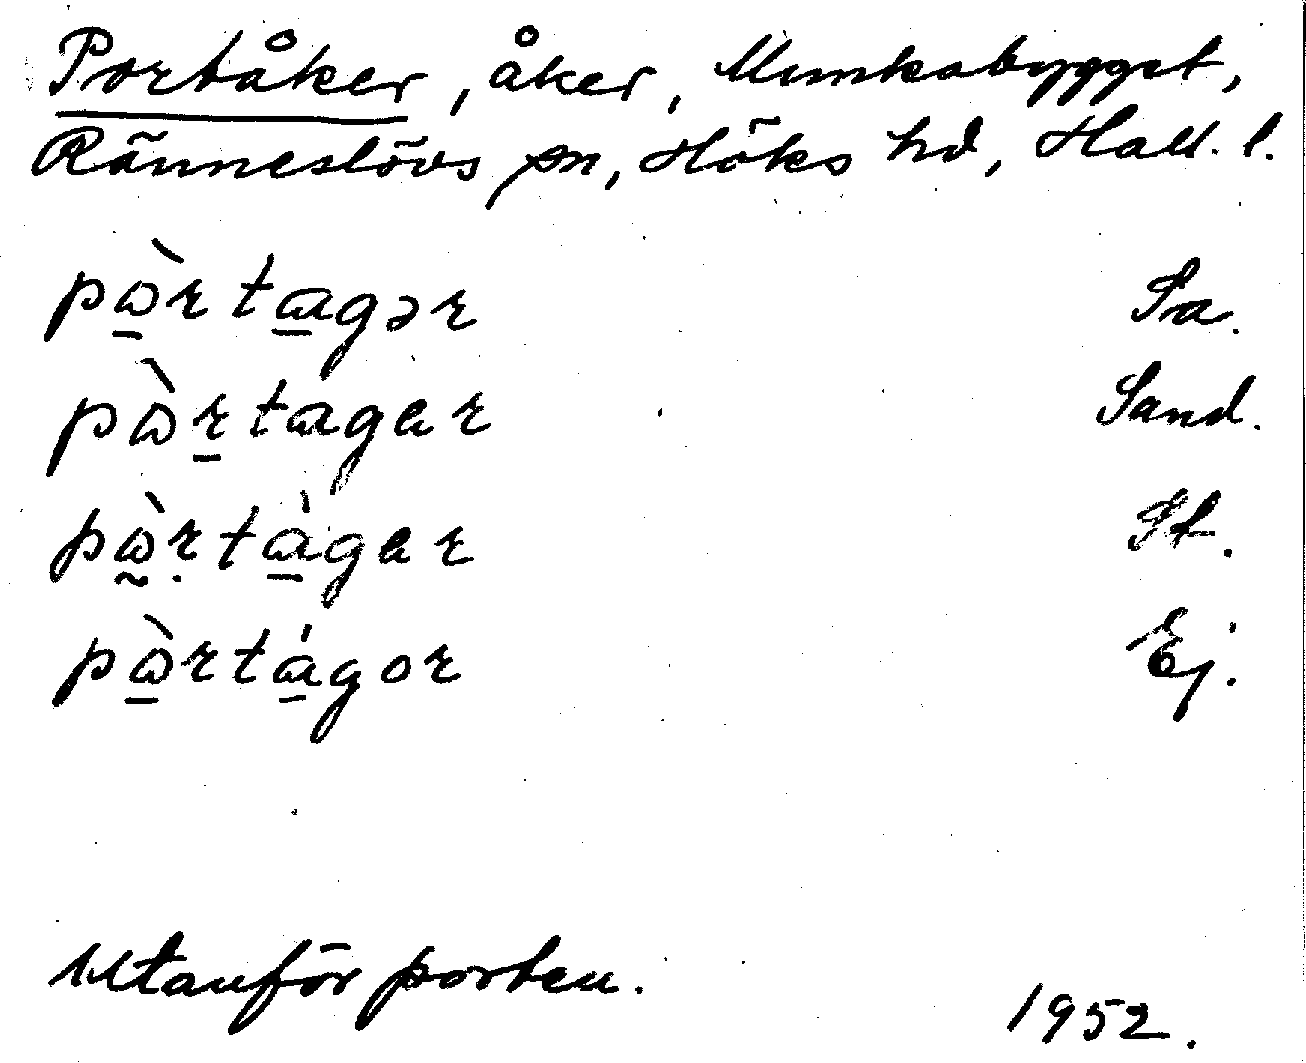 Portåker, åker, Munkabygget,
Ränneslövs sn, Höks hd, Hall. l.
pὼ̱rtα̱gər Sa.
pὼṟtαger Sand.
pὼ̰ṛtὰ̱ger St.
pὼ̱rtά̱gor Ej.
Utanför porten.
1952.